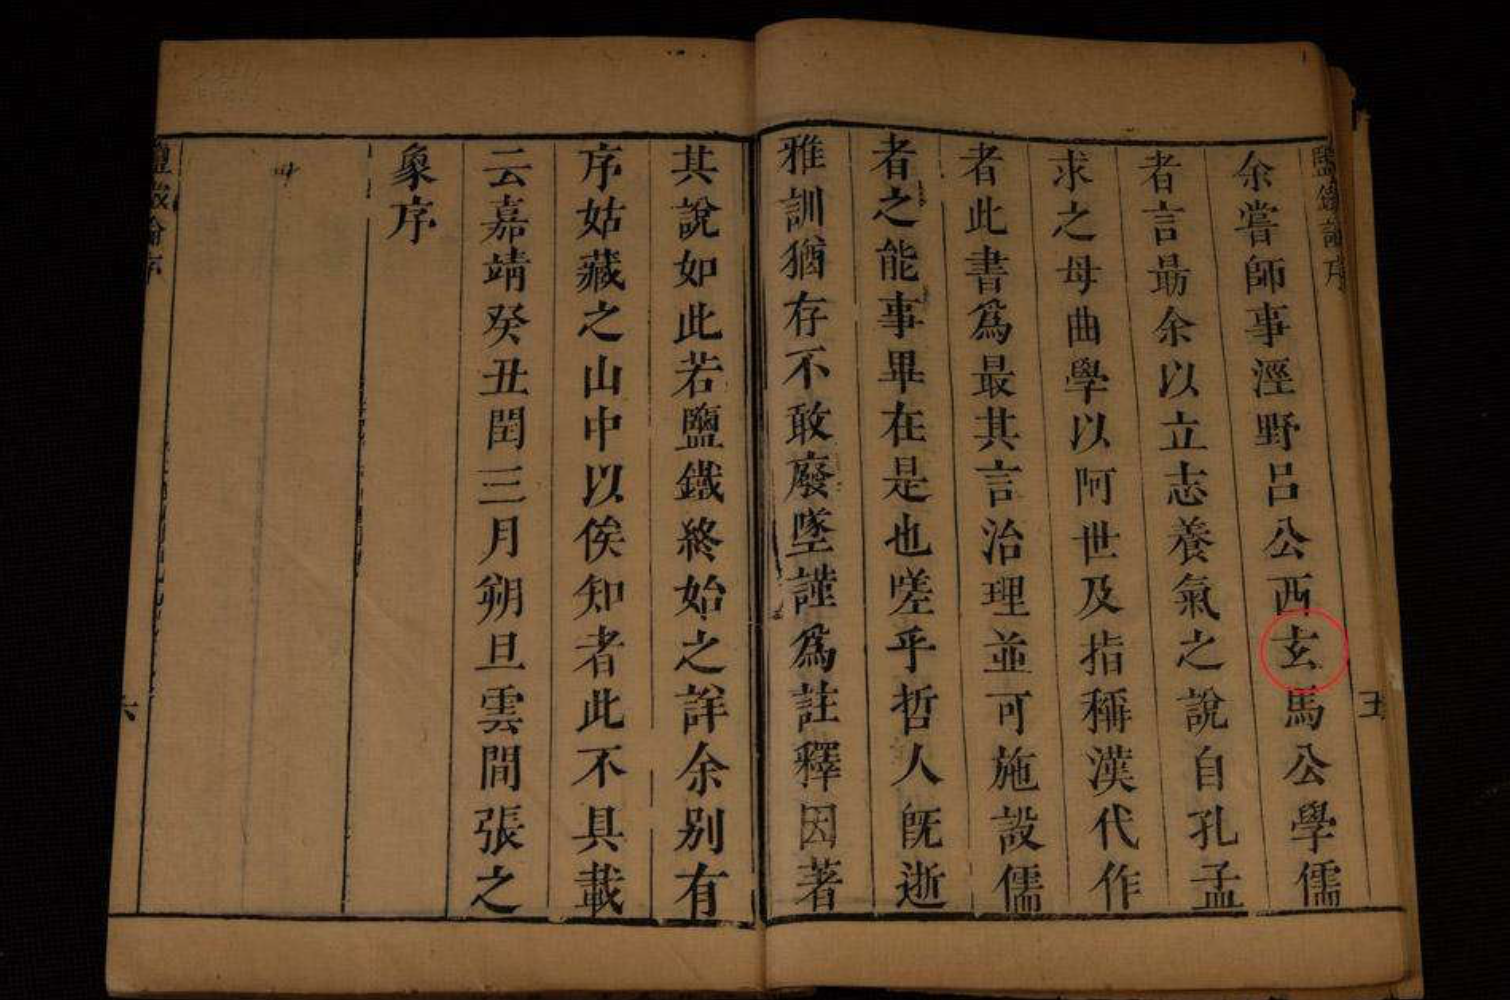 鹽鐵論序
五
余嘗師事涇野呂公西玄馬公學儒
者言最余以立志養氣之說自孔孟
求之母曲學以阿世及指稱漢代作
者此書爲最其言治理並可施設儒
者之能事畢在是也嗟乎哲人旣逝
雅訓猶存不敢廢墜謹爲註釋因著
其說如此若鹽鐵終始之詳余别有
序姑藏之山中以俟知者此不具載
云嘉靖癸丑閏三月朔旦雲間張之
象序
鹽鐵論序
六